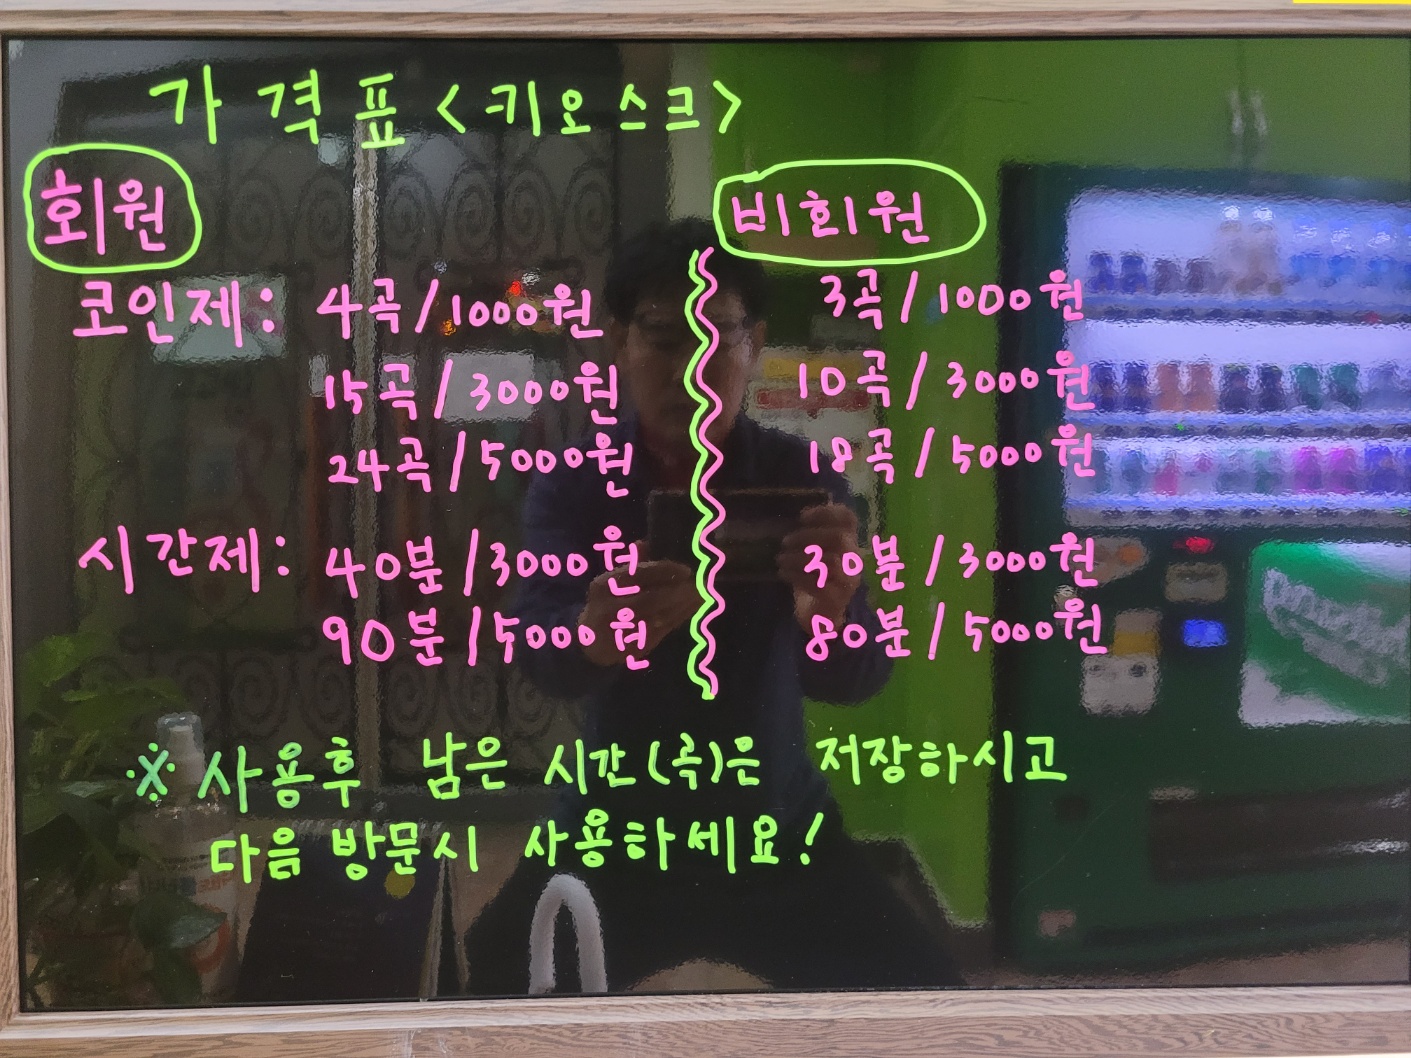 가격표<키오스크>
회원 비회원
코인제: 4곡/1000원 3곡/1000원
15곡/3000원 10곡/3000원
24곡/5000원 18곡/5000원
시간제: 40분/3000원 30분/3000원
90분/5000원 80분/5000원
※ 사용후 남은 시간(곡)은 저장하시고
다음 방문시 사용하세요!